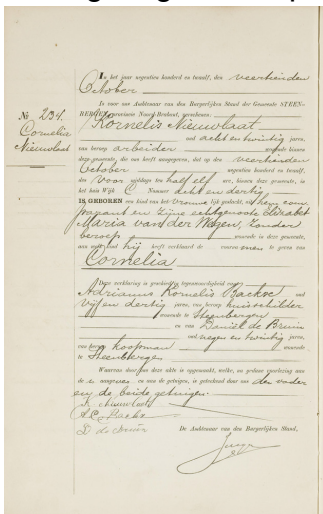 In het jaar negentien honderd en twaalf, den veertienden
October
is voor ons Ambtenaar van den Burgerlijken Stand der Gemeente STEEN-
BERGEN, provincie Noord-Brabant, verschenen:
Kornelis Nieuwlaat
oud acht en twintig jaren,
van beroep arbeider wonende binnen
deze gemeente, die ons heeft aangegeven, dat op den veertienden
October negentien honderd en twaalf,
des voor middags ten half elf ure, binnen deze gemeente, in
het huis Wijk C Nummer acht en dertig
IS GEBOREN een kind van het vrouwelijk geslacht, uit hem com-
parant en zijne echtgenoote Elizabet
Maria van der Wegen, zonder
beroep wonende in deze gemeente,
aan welk kind hij heeft verklaard de voornamen te geven van
Cornelia
No 234.
Cornelia
Nieuwlaat
Deze verklaring is geschied in tegenwoordigheid van
Adrianus Kornelis Backx oud
vijf en dertig jaren, van beroep huisschilder
wonende te Steenbergen
en van Daniël de Bruin
oud negen en twintig jaren,
van beroep koopman wonende
te Steenbergen
Waarvan door ons deze akte is opgemaakt, welke, na gedane voorlezing aan
de aangever en aan de getuigen, is geteekend door ons den vader
en de beide getuigen.
K. Nieuwlaat
A.C. Backx
D de Bruin
De Ambtenaar van den Burgerlijken Stand,